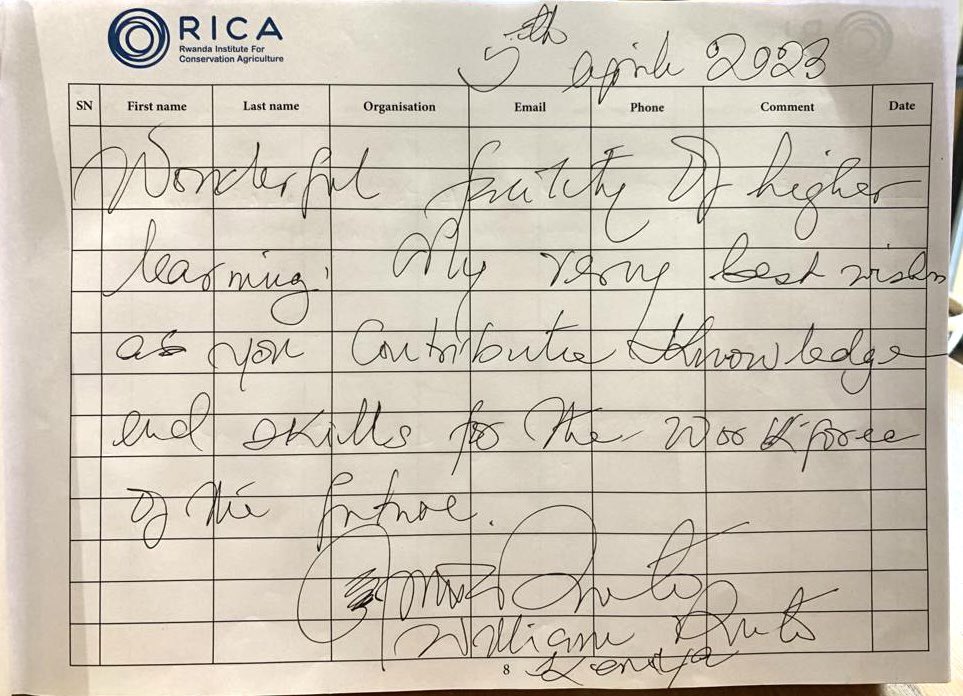 RICA
Rwanda Institute For
Conservation Agriculture
5th april 2023
SN First name Last name Organisation Email Phone Comment Date
Wonderful facility of higher
learning. My very best wishes
as you contribute knowledge
and skills for the workforce
of the future.
William Ruto
8 Kenya